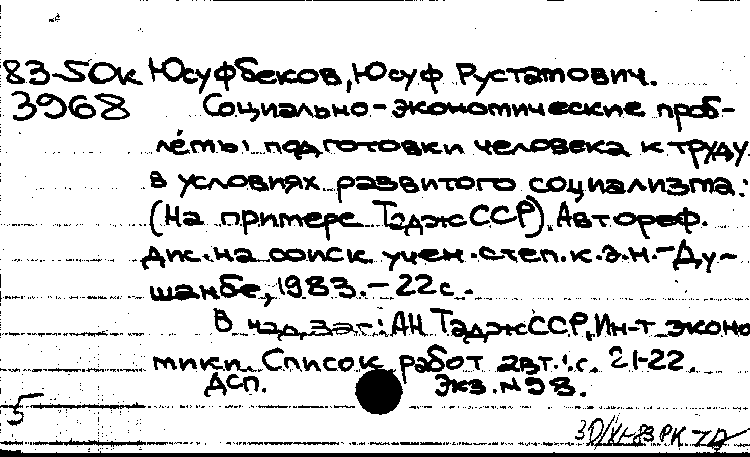 83-50к Юсуфбеков, Юсуф Рустамович.
3968 Социально-экономические проб-
лемы подготовки человека к труду
в условиях развитого социализма:
(На примере ТаджССР). Автореф.
дис. на соиск. учен. степ. к.э.н. - Ду-
шанбе, 1983. - 22 с.
В надзаг.: АН ТаджССР, Ин-т эконо
мики. Список работ авт.: с. 21-22.
ДСП. Экз. N 98.
5
30/XI-83 РК